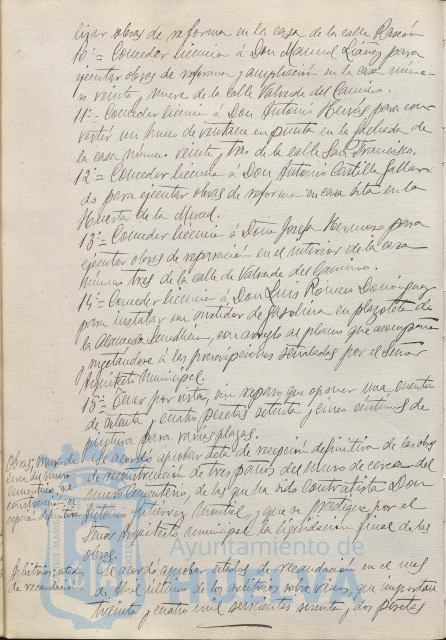 lizar obras de reforma en la casa de la calle Rascón
10º= Conceder licencia á Don Manuel Liánez para
ejecutar obras de reforma y ampliación en la casa núme-
ro veinte y nueve de la calle Valverde del Camino.
11º- Conceder licencia á Don Antonio Hervás para con-
vertir un hueco de ventana en puerta en la fachada de
la casa número veinte y tres de la calle San Francisco.
12º= Conceder licencia á Don Antonio Castilla Gallar-
do para ejecutar obras de reforma en casa sita en la
Huerta de la Merced.
13º= Conceder licencia á Doña Josefa Hermoso para
ejecutar obras de reparación en el interior de la casa
número tres de la calle de Valverde del Camino.
14º= Conceder licencia á Don Luis Romero Domínguez
para instalar un surtidor de gasolina en plazoleta de
la Alameda Sundheim, con arreglo al plano que acompaña
y sujetándose á las prescripciones señaladas por el Señor
Arquitecto Municipal.
15º= Tener por vista, sin reparo que oponer una cuenta
de setenta y cuatro pesetas setenta y cinco céntimos de
pintura para varias plazas.
Obras; muro de
cerca del nuevo
cementerio,
recepción definitiva
Se acordó aprobar acta de recepción definitiva de las obras
de reconstrucción de tres paños del muro de cercas del
nuevo Cementerio, de las que ha sido contratista Don
Antonio Gutierrez Montiel, y que se practique por el
Señor Arquitecto municipal la liquidación final de las
obras.
Arbitrios: estados
de recaudación.
Se acordó aprobar estados de recaudación en el mes
de Abril último de los arbitrios sobre vinos, que importan
treinta y cuatro mil seiscientas sesenta y dos pesetas
Ayuntamiento de
HUELVA